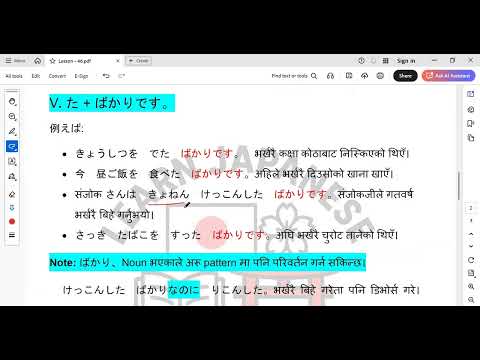 Lesson - 46.pdf
Create
Sign in
All tools
Edit
Convert
E-Sign
Find text or tools
Share
Ask AI Assistant
V. た + ばかりです。
例えば:
• きょうしつを でた ばかりです。 भर्खरै कक्षा कोठाबाट निस्किएको थिएँ।
• 今 昼ご飯を 食べた ばかりです。अहिले भर्खरै दिउसोको खाना खाएँ।
• संजोक さんは きょねん けっこんした ばかりです。संजोकजीले गतवर्ष
भर्खरै बिहे गर्नुभयो।
• さっき たばこを すった ばかりです。अघि भर्खरै चुरोट तानेको थिएँ।
Note: ばかり、Noun भएकाले अरू pattern मा पनि परिवर्तन गर्न सकिन्छ।
けっこんした ばかりなのに りこんした。भर्खरै बिहे गरेता पनि डिभोर्स गरे।
LEARN JAPANESE